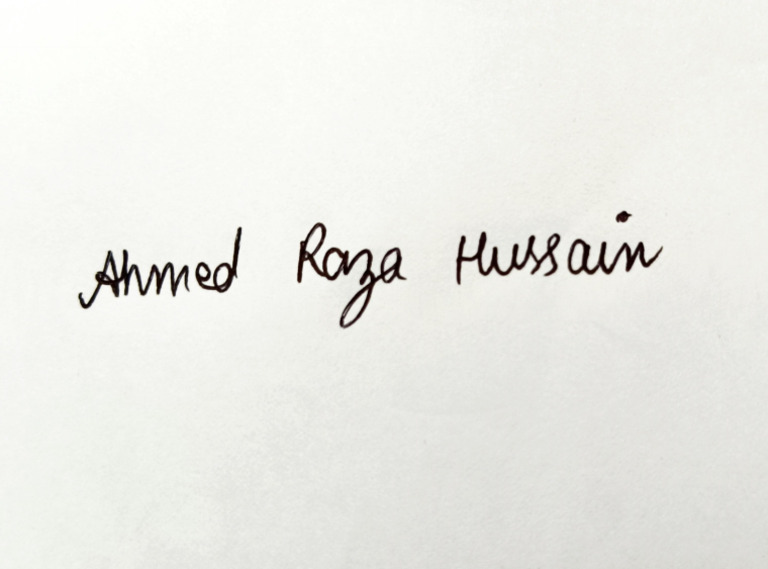 Ahmed Raza Hussain